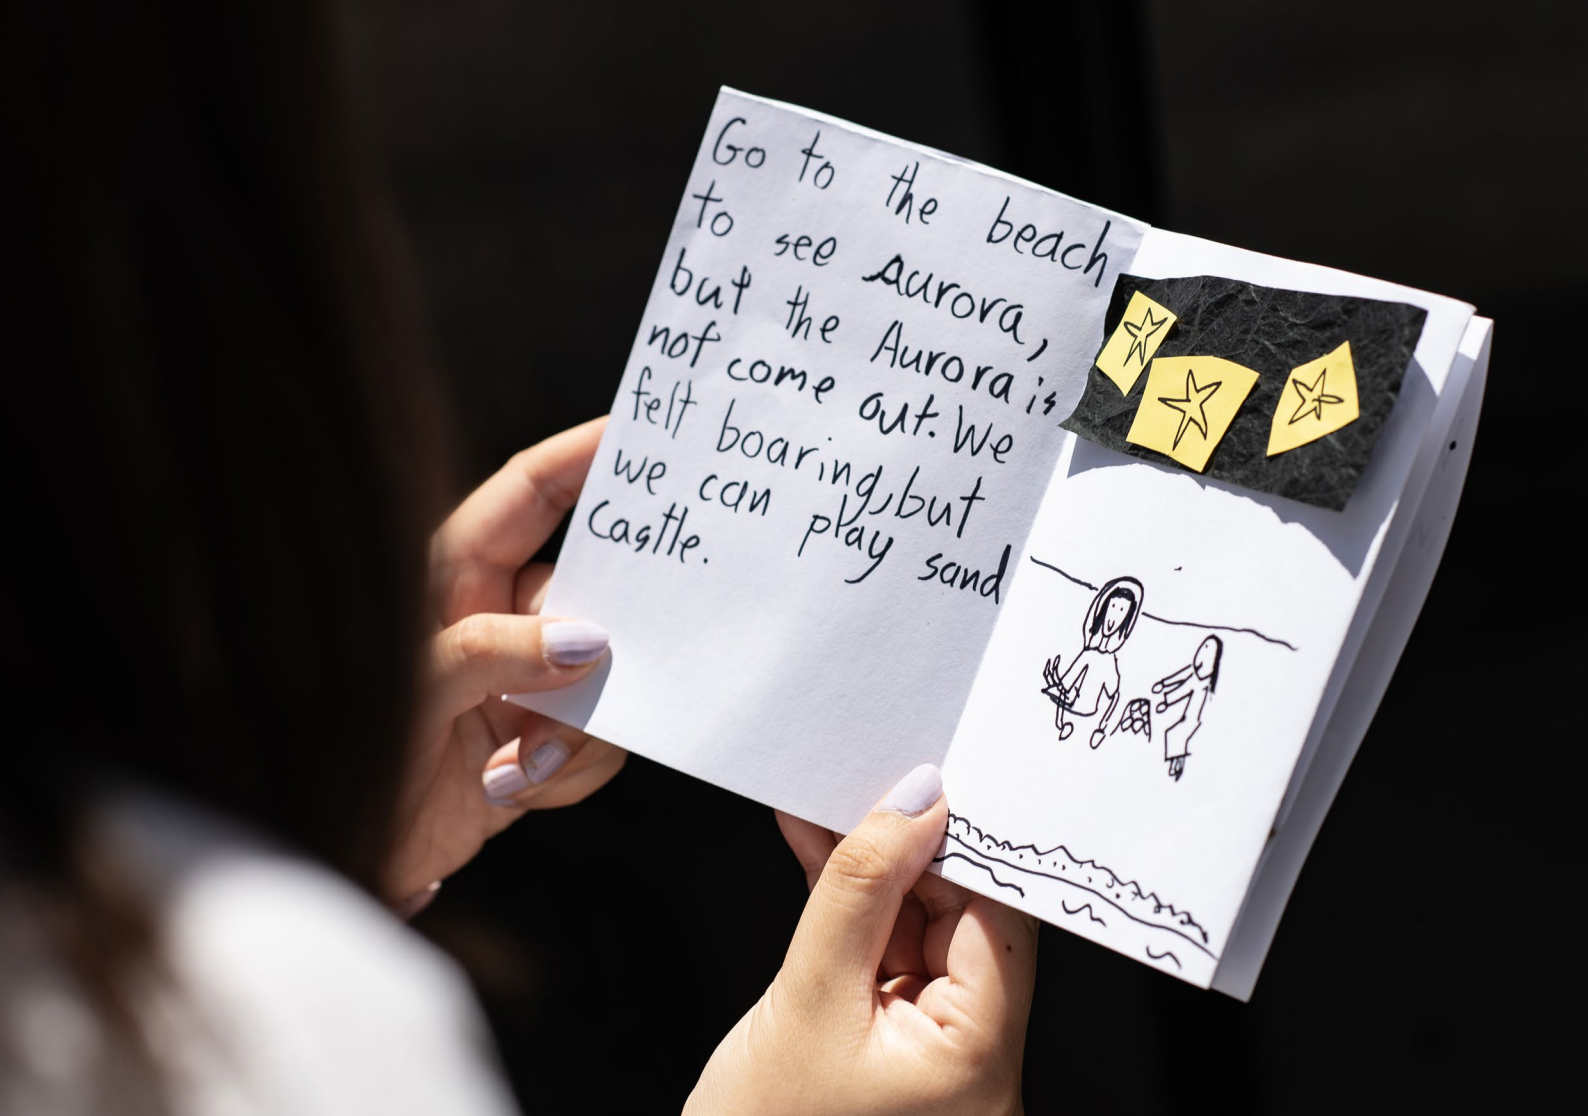 Go to the beach
to see Aurora,
but the Aurora is
not come out. We
felt boaring, but
we can play sand
Castle.